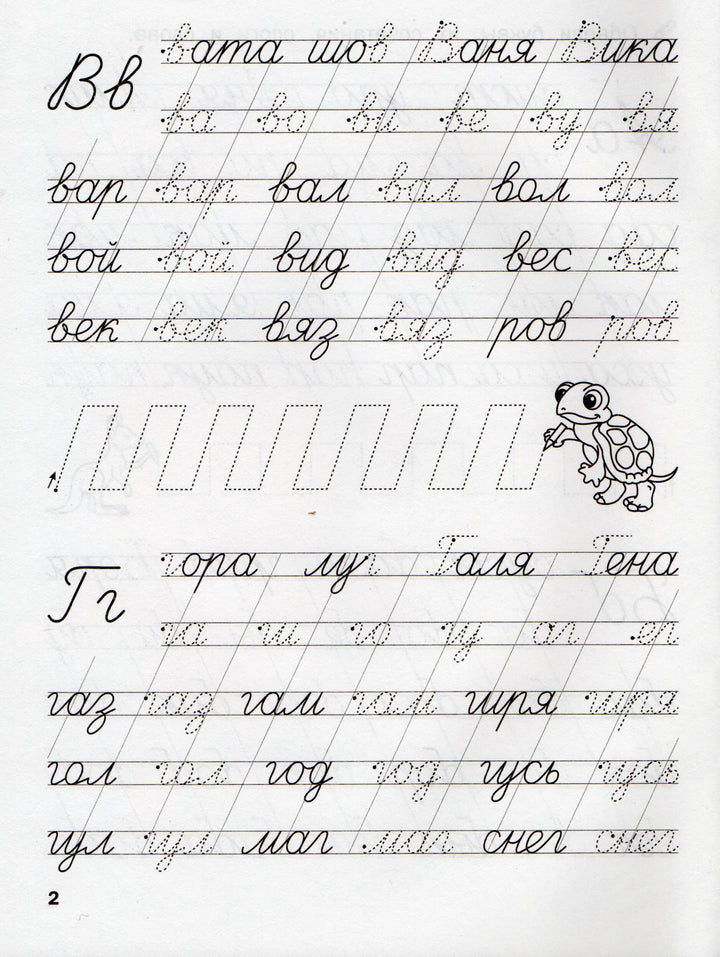 Вв
вата шов Ваня Вика
ва во ви ве ву вя
вар вар вал вал вол вол
вой вой вид вид вес вес
век век вяз вяз ров ров
Гг
гора луг Галя Гена
га ги го гу аг ег
газ газ гам гам гиря гиря
гол гол год год гусь гусь
гул гул маг маг снег снег
2